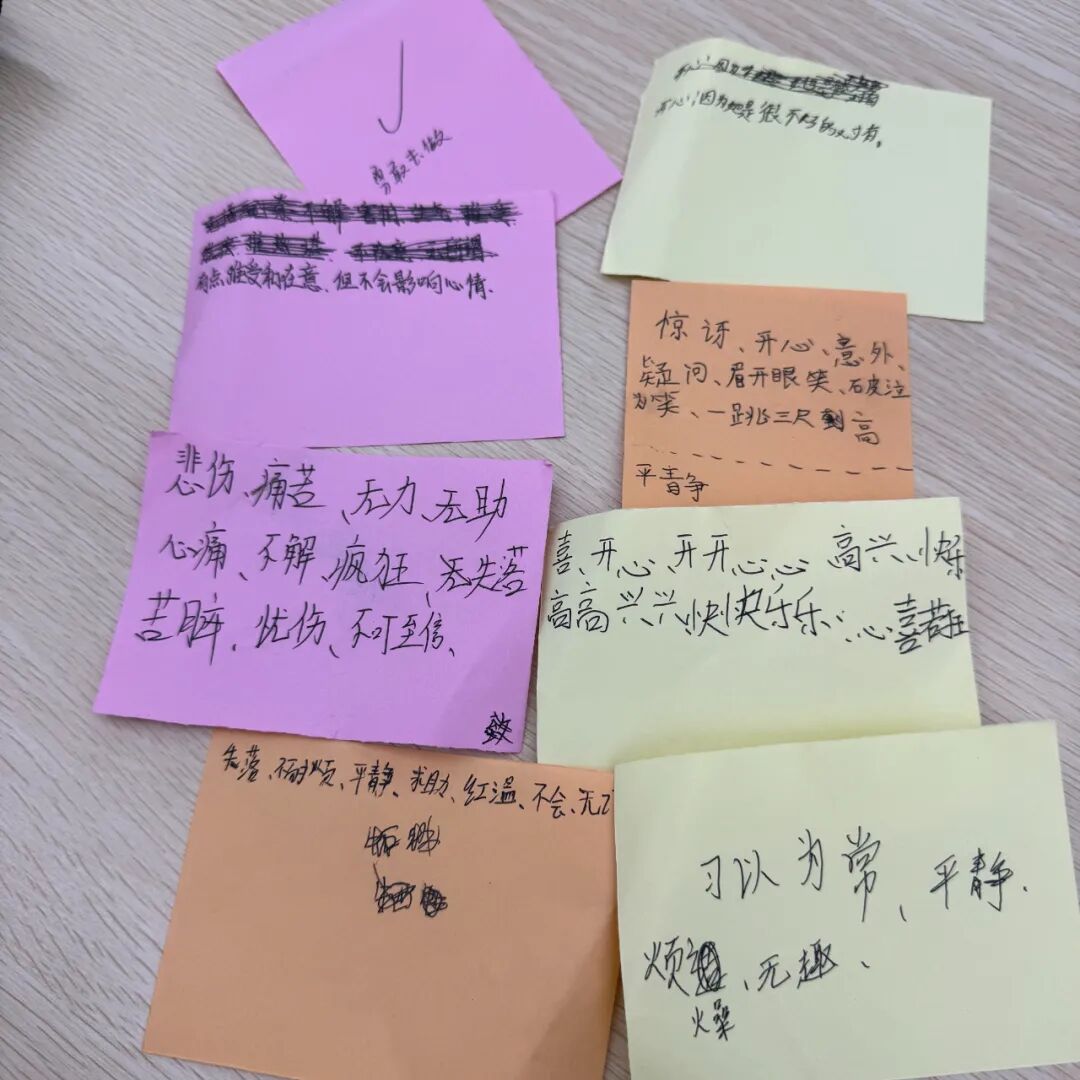 勇敢去做
有点难受和在意、但不会影响心情.
悲伤、痛苦、无力、无助
心痛、不解、疯狂、无失落
苦恼、忧伤、不可至信、
失落、不耐烦、平静、求助、红温、不会、无
开心:因为她是很不好的对有。
惊讶、开心、意外、
疑问、眉开眼笑、石皮泣
为笑、一跳三尺高
平静
喜、开心、开开心心、高兴、快乐
高高兴兴、快快乐乐、心喜若狂
习以为常、平静.
烦、无趣、
燥